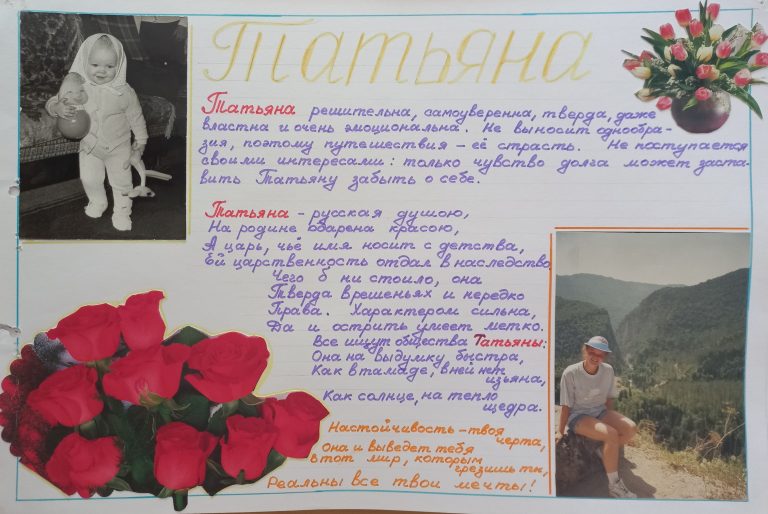 Татьяна
Татьяна решительна, самоуверенна, тверда, даже
властна и очень эмоциональна. Не выносит однообра-
зия, поэтому путешествия – её страсть. Не поступается
своими интересами: только чувство долга может заста-
вить Татьяну забыть о себе.
Татьяна – русская душою,
На родине одарена красою,
А царь, чьё имя носит с детства,
Ей царственность отдал в наследство.
Чего б ни стоило, она
Тверда в решеньях и нередко
Права. Характером сильна,
Да и острить умеет метко.
Все ищут общества Татьяны:
Она на выдумку быстра,
Как в тамаде, в ней нет
изъяна,
Как солнце, на тепло
щедра.
Настойчивость – твоя
черта,
Она и выведет тебя
в тот мир, которым
грезишь ты,
Реальны все твои мечты!